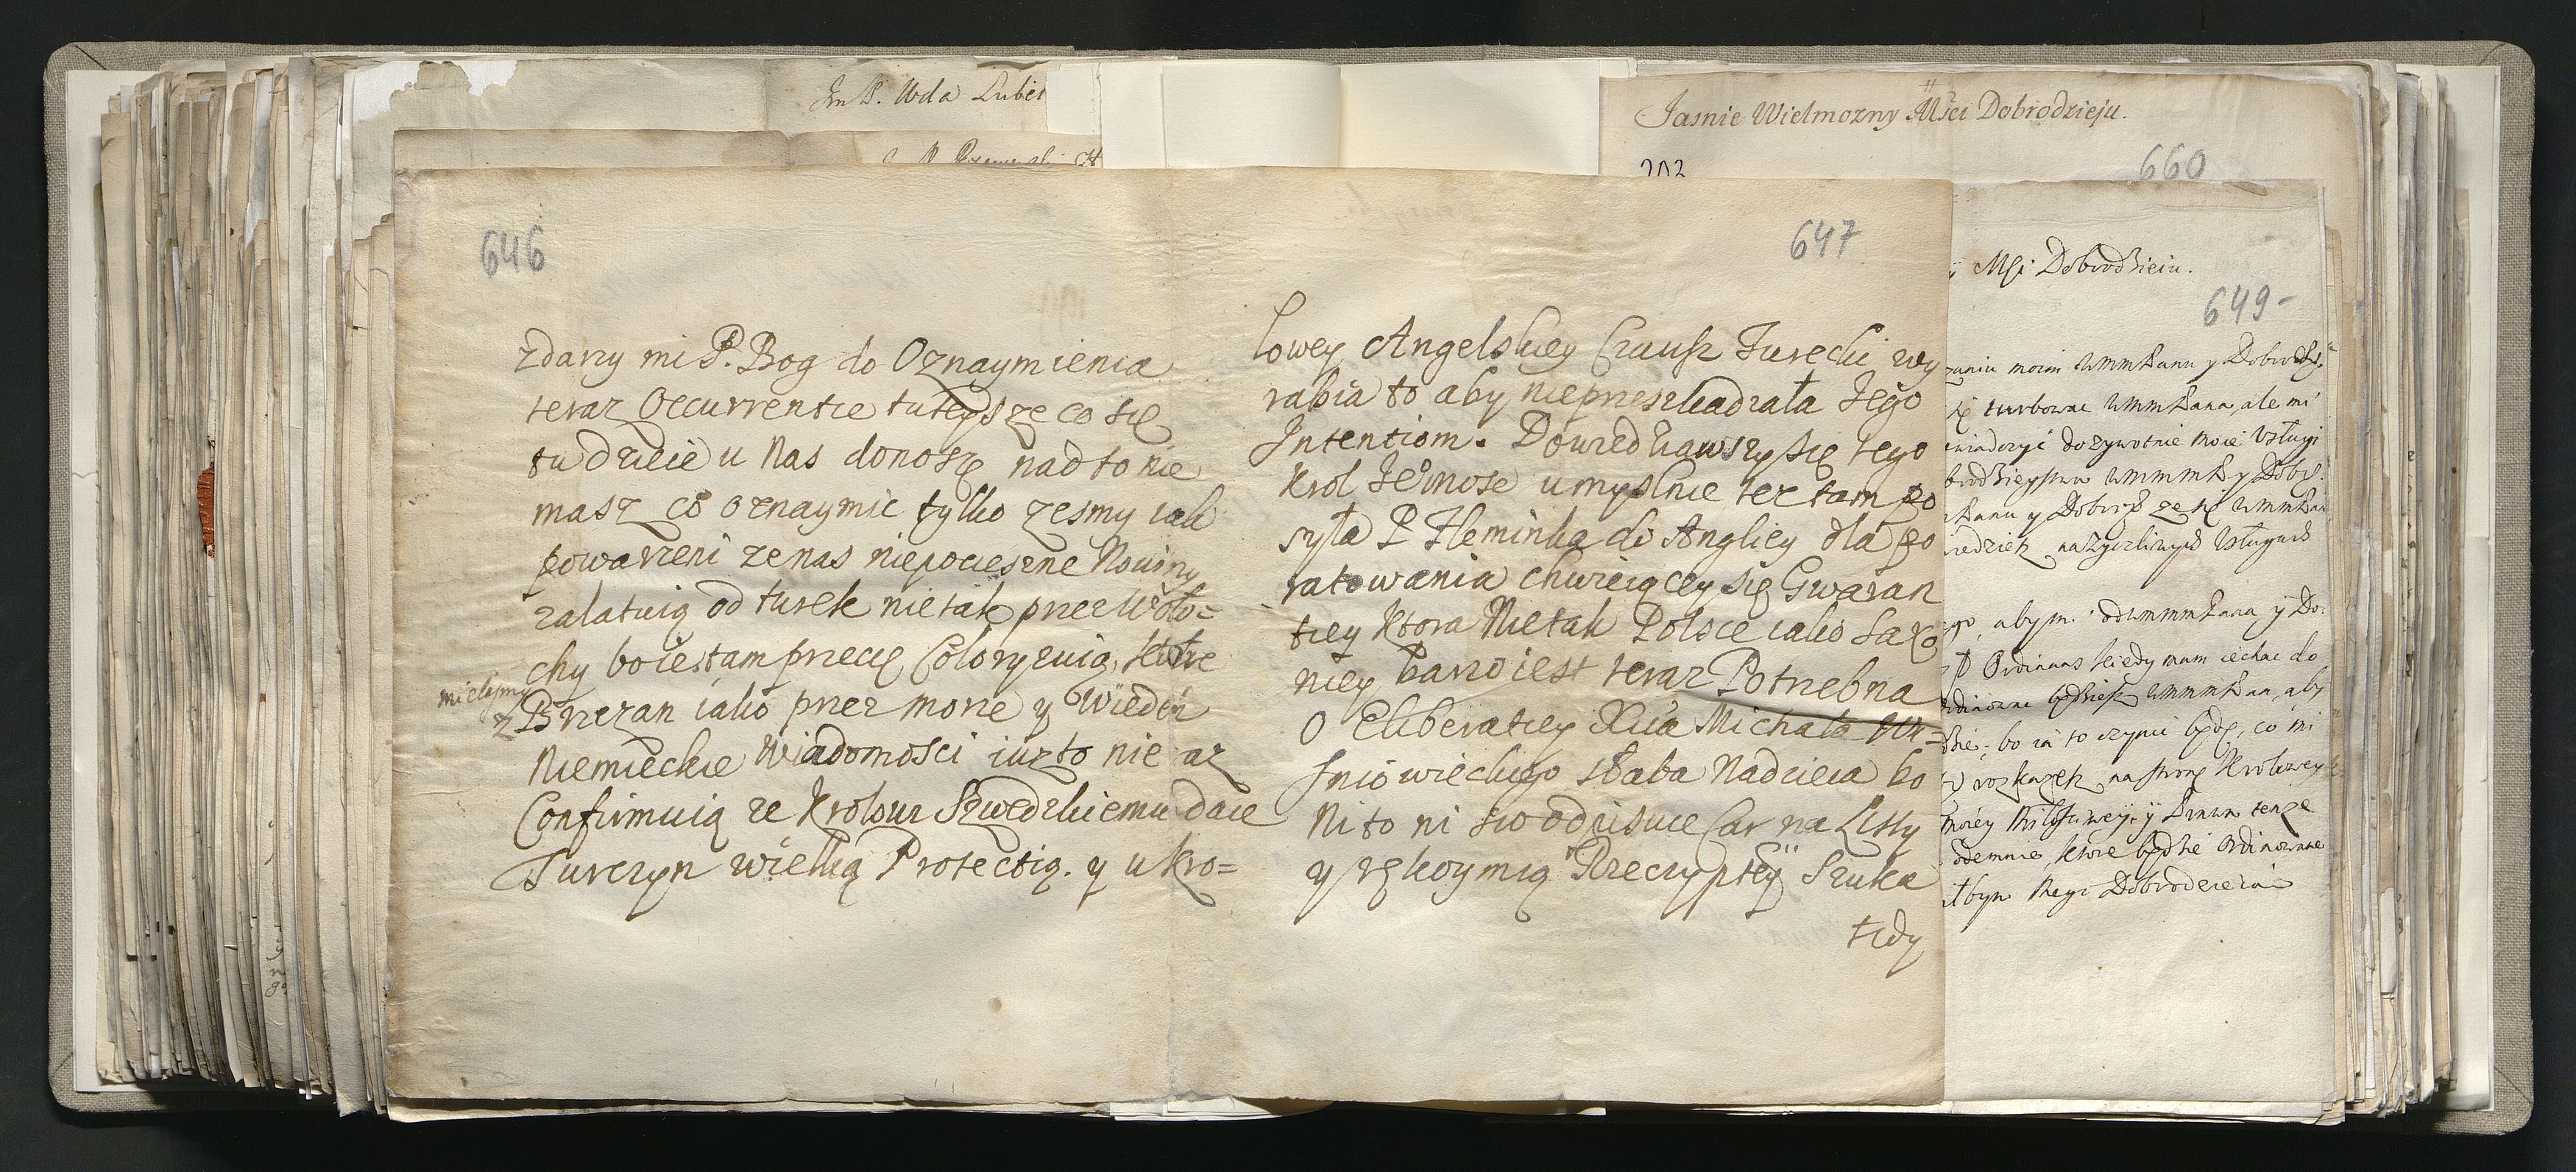 Jm P. Wda Lubel
Jasnie Wielmozny Msci Dobrodzieju.
202
660
646
zdarzy mi P. Bog do Oznaymienia
teraz Occurrentie tuteysze co się
tu dzieie u Nas donoszę nad to nie
masz co oznaymic tylko zesmy iak
powarzeni ze nas niepocieszne Nowiny
zalatuią od turek nie tak przez Woło=
chy bo ie tam przecię Coloryzuią, ktore
mielismy
z Brzezan iako przez morze y Wiedeń
Niemieckie Wiadomosci iuz to nie raz
Confirmuią ze Krolowi Szwedzkiemu daie
Turczyn wielką Protectią. y u Kro=
647
lowey Angelskiey Czausz Turecki wy
rabia to aby nieprzeszkadzała Jego
Intentiom. Dowiedziawszy się tego
Krol Jeomosc umyslnie tez tam po
syła P Fleminka do Angliey dla po
ratowania chwieiącey się Gwaran
tiey ktora Nie tak Polsce iako Saxo
niey barzo iest teraz Potrzebna
O Eliberatiey Xcia Michała Wi=
sniowieckiego słaba Nadzieia bo
Ni to ni swo odpisuie Car na Listy
y rękoymią Rzeczyptey Szuka
tedy
Msci Dobrodzieiu.
649-
moim WmmPanu y Dobrodz.
turbowac WmmPana, ale mi
dozywotnie moie Usługi
WmmmP y Dobr.
y Dobrod ze nę WmmPan
na zyczliwych Usługach
abym odWmmmPana y Do:
Ordinans kiedy mam iechac do
będziesz WmmmPan, aby
bo ia to czynic będę, co mi
rozkazesz na stronę Krolowey
odemnie, ktore będzie Ordinowane
Mego Dobrodzieia